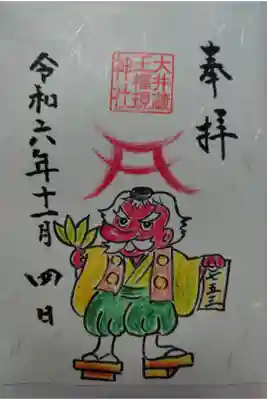 奉拝
大井蔵
王権現
神社
令和六年十一月四日
七五三